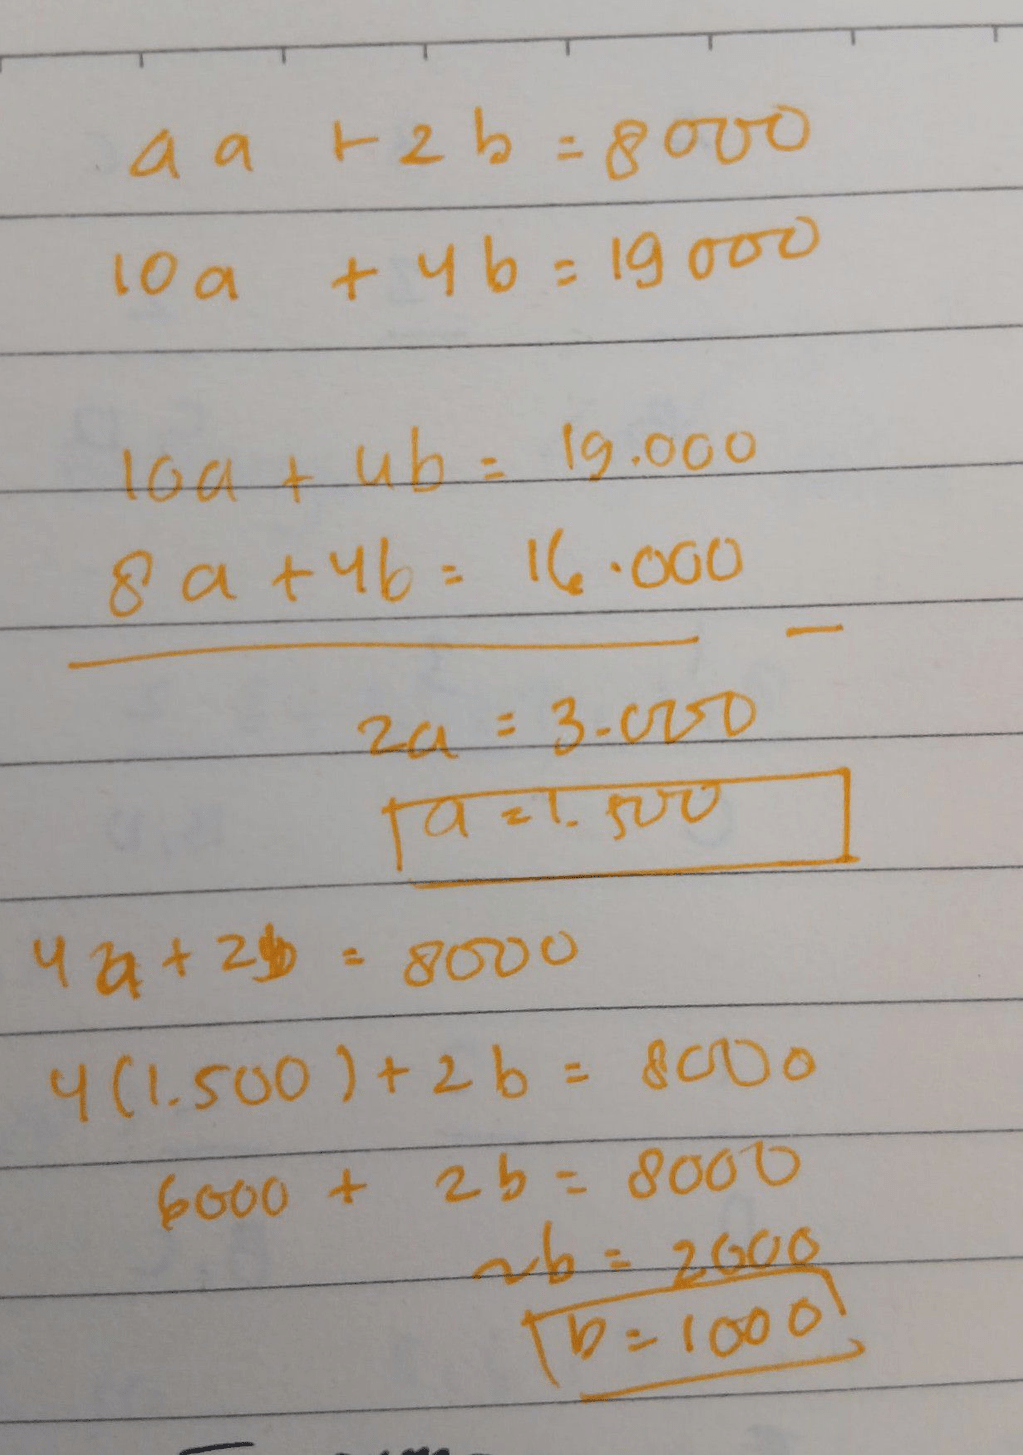 4a + 2b = 8000
10a + 4b = 19000
10a + 4b = 19.000
8a + 4b = 16.000
—
2a = 3.000
a = 1.500
4a + 2b = 8000
4(1.500) + 2b = 8000
6000 + 2b = 8000
2b = 2000
b = 1000